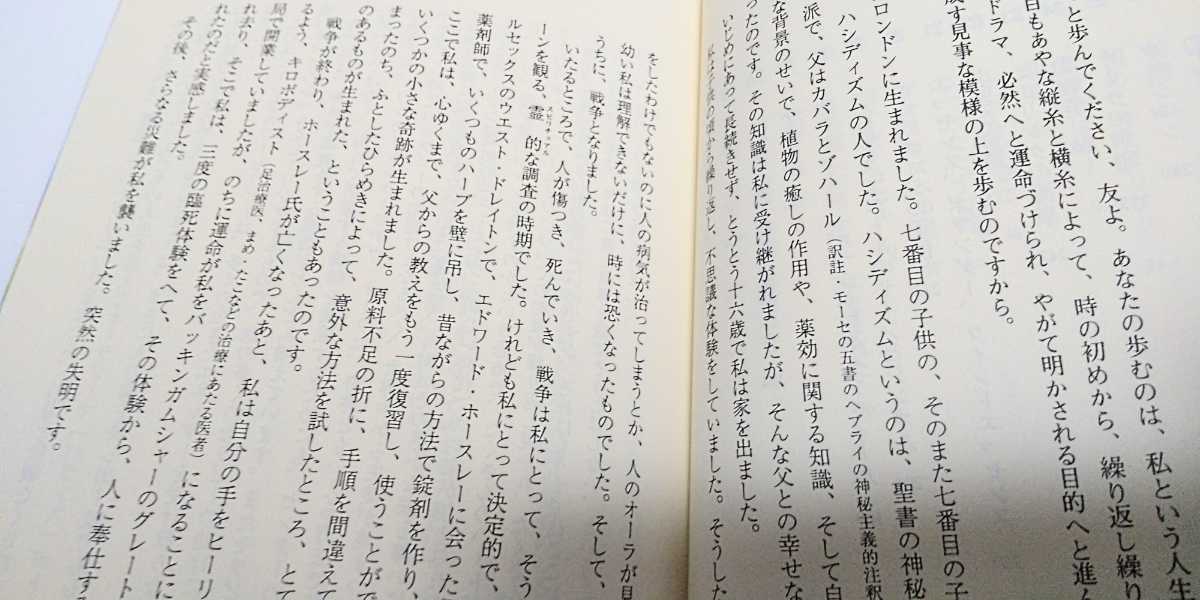 と歩んでください、友よ。あなたの歩むのは、私という人生
目もあやな縦糸と横糸によって、時の初めから、繰り返し繰り
ドラマ、必然へと運命づけられ、やがて明かされる目的へと進ん
成す見事な模様の上を歩むのですから。
ロンドンに生まれました。七番目の子供の、そのまた七番目の子
ハシディズムの人でした。ハシディズムというのは、聖書の神秘
派で、父はカバラとゾハール（訳註・モーセの五書のヘブライの神秘主義的注釈
な背景のせいで、植物の癒しの作用や、薬効に関する知識、そして自
ったのです。その知識は私に受け継がれましたが、そんな父との幸せな
いじめにあって長続きせず、とうとう十六歳で私は家を出ました。
私は子供の頃から繰り返し、不思議な体験をしていました。そうした
をしたわけでもないのに人の病気が治ってしまうとか、人のオーラが目
幼い私は理解できないだけに、時には恐くなったものでした。そして、
うちに、戦争となりました。
いたるところで、人が傷つき、死んでいき、戦争は私にとって、そう
ーンを観る、霊的スピリチュアルな調査の時期でした。けれども私にとって決定的で、
ルセックスのウエスト・ドレイトンで、エドワード・ホースレーに会った
薬剤師で、いくつものハーブを壁に吊し、昔ながらの方法で錠剤を作り、
ここで私は、心ゆくまで、父からの教えをもう一度復習し、使うことがで
いくつかの小さな奇跡が生まれました。原料不足の折に、手順を間違えて
まったのち、ふとしたひらめきによって、意外な方法を試したところ、とて
のあるものが生まれた、ということもあったのです。
戦争が終わり、ホースレー氏が亡くなったあと、私は自分の手をヒーリ
るよう、キロポディスト（足治療医、まめ・たこなどの治療にあたる医者）になることに
局で開業していましたが、のちに運命が私をバッキンガムシャーのグレート
れ去り、そこで私は、三度の臨死体験をへて、その体験から、人に奉仕する
れたのだと実感しました。
その後、さらなる災難が私を襲いました。突然の失明です。